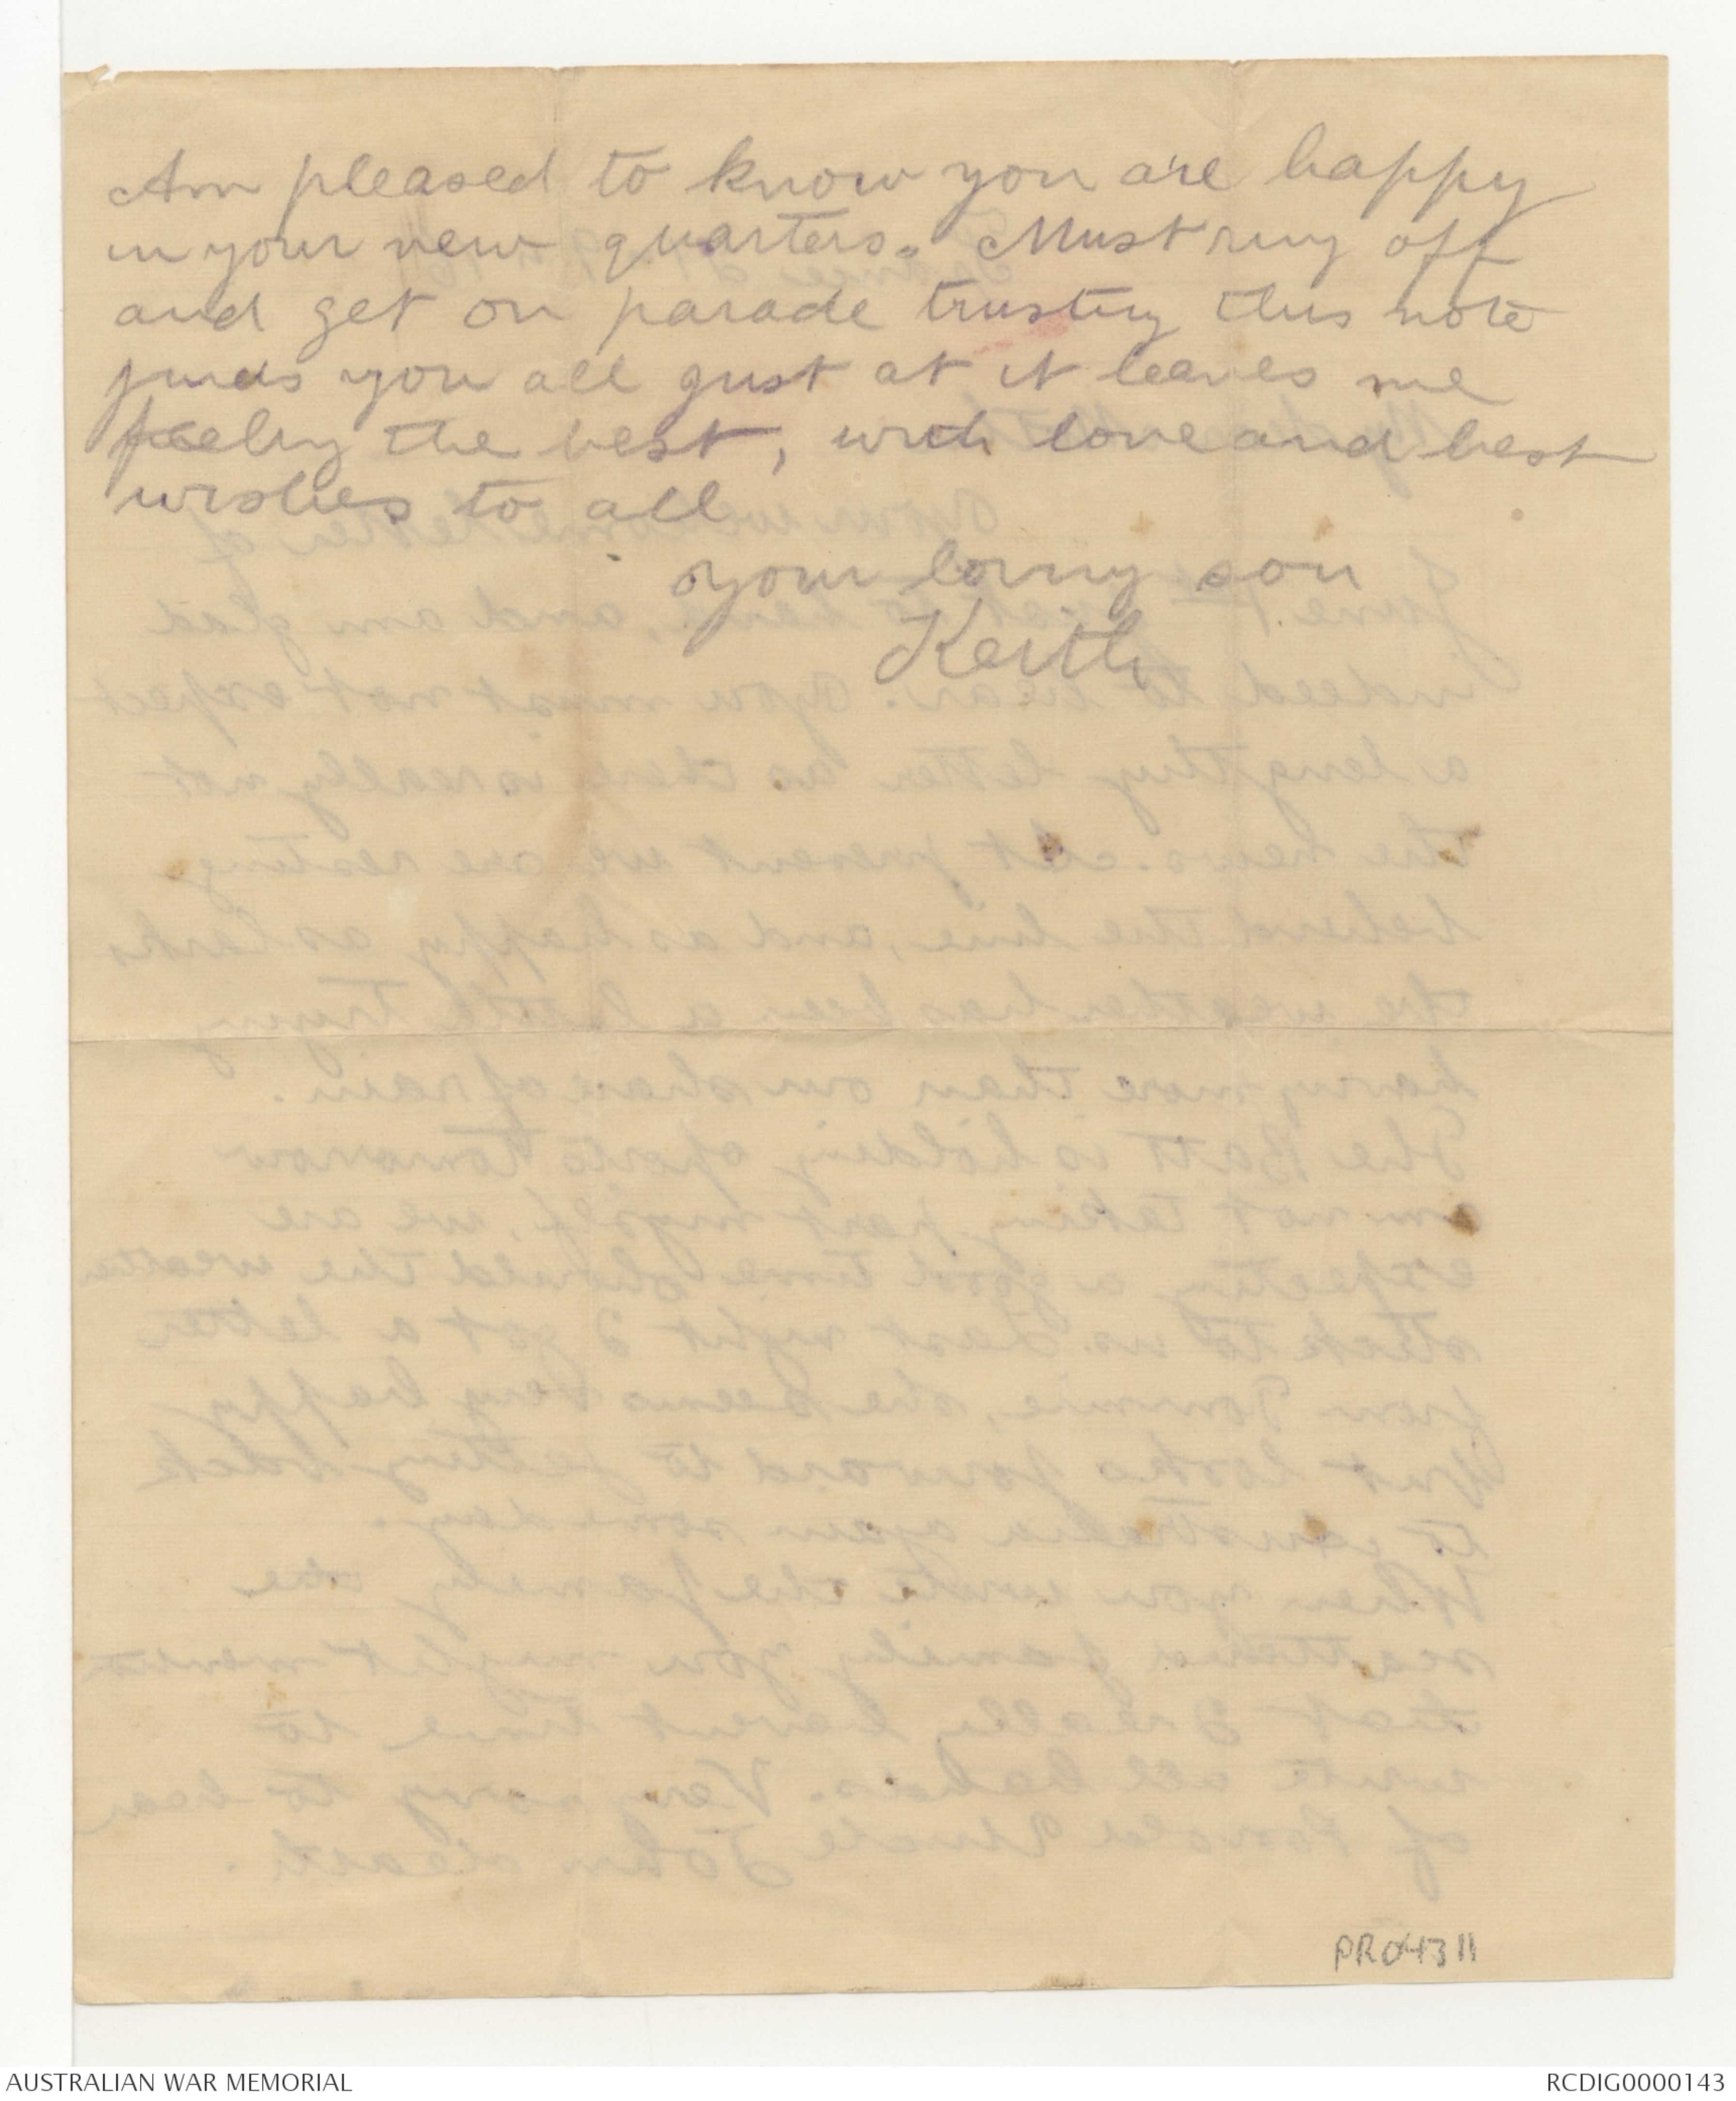 Am pleased to know you are happy
in your new quarters. Must ring off
and get on parade trusting this note
finds you all just at it leaves me
feeling the best, with love and best
wishes to all
your loving son
Keith
PR04311
AUSTRALIAN WAR MEMORIAL
RCDIG0000143